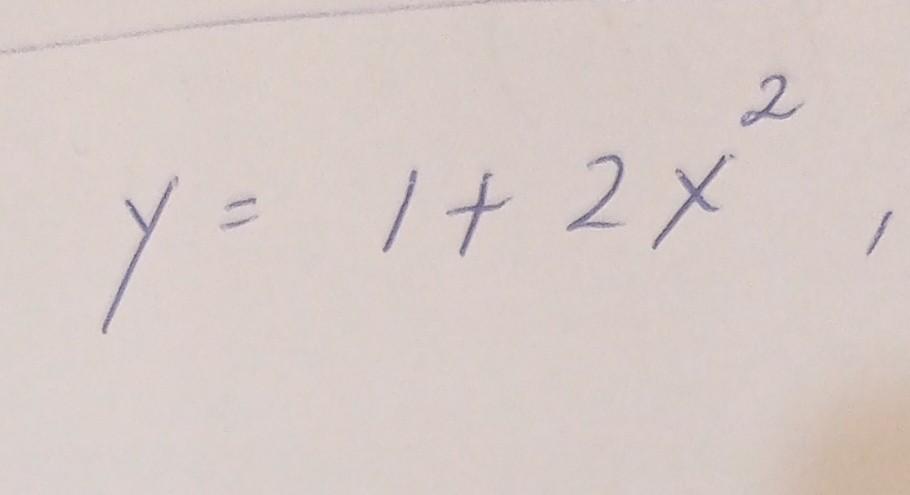 y = 1 + 2x²,